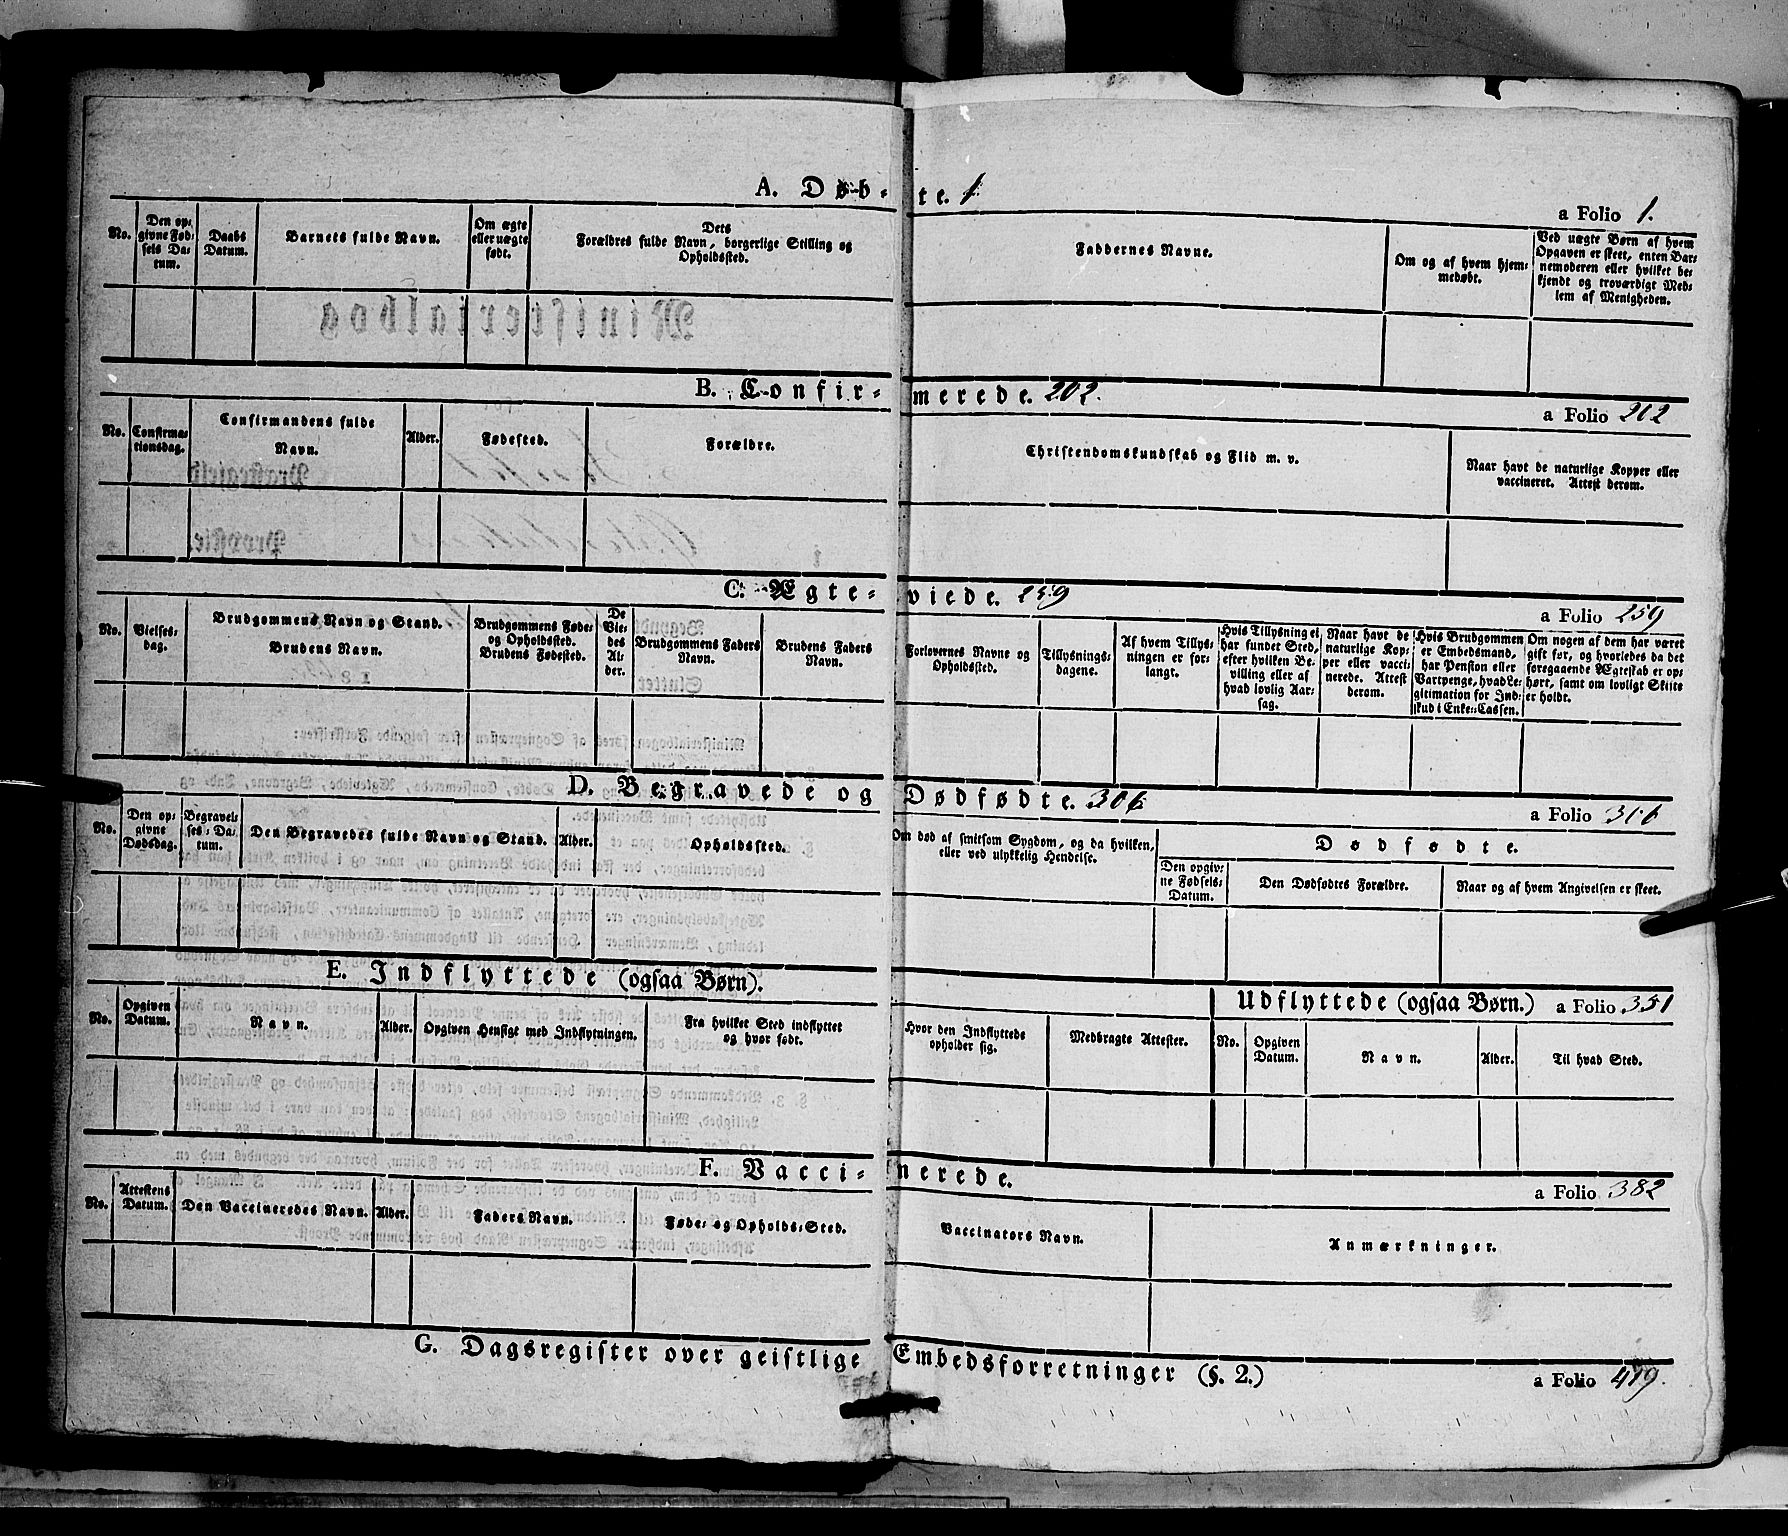 A. Døbte. 1
a Folio 1.
No.
Den op=
givne Fød=
sels Da=
tum.
Daabs
Datum.
Barnets fulde Navn.
Om ægte
eller uægte
født.
Dets
Forældres fulde Navn, borgerlige Stilling og
Opholdssted.
Faddernes Navne.
Om og af hvem hjem=
medøbt.
Ved uægte Børn af hvem
Opgaven er skeet, enten Bar=
nemoderen eller hvilket be=
kjendt og troværdigt Med=
lem af Menigheden.
Ministerialbog
B. Confirmerede. 202.
a Folio 202
No.
Confirma=
tionsdag.
Confirmandens fulde
Navn.
Alder.
Fødested.
Forældre.
Christendomskundskab og Flid m. v.
Naar havt de naturlige Kopper eller
vaccineret. Attest derom.
Præstegield
Provstie.
C. Ægteviede. 259
a Folio 259
No.
Vielses=
dag.
Brudgommens Navn og Stand.
Brudens Navn.
Brudgommens Føde=
og Opholdssted.
Brudens Fødested.
De
Vie=
des
Al=
der.
Brudgommens Faders
Navn.
Brudens Faders
Navn.
Forlovernes Navne og
Opholdssted.
Tillysnings=
dagene.
Af hvem Tillys=
ningen er for=
langt.
Hvis Tillysning ei
har fundet Sted,
efter hvilken Be=
villing eller af
hvad lovlig Aar=
sag.
Naar havt de
naturlige Kop=
per eller vacci=
nerede. Attest
derom.
Hvis Brudgommen
er Embedsmand,
har Pension eller
Vartpenge, hvad Le=
gitimation for Ind=
skud i Enke=Cassen.
Om nogen af dem har været
gift før, og hvorledes da det
foregaaende Ægteskab er op=
hørt, samt om lovligt Skifte
er holdt.
D. Begravede og Dødfødte. 306
a Folio 306
No.
Den op=
givne
Dødsdag.
Begravel=
ses=Da=
tum.
Den Begravedes fulde Navn og Stand.
Alder.
Opholdssted.
Om død af smitsom Sygdom, og da hvilken,
eller ved ulykkelig Hendelse.
Dødfødte.
Den opgiv=
ne Fødsels=
Datum.
Den Dødfødtes Forældre.
Naar og af hvem Angivelsen er skeet.
E. Indflyttede (ogsaa Børn).
Udflyttede (ogsaa Børn.) a Folio 351
No.
Opgiven
Datum.
Navn.
Alder.
Opgiven Hensigt med Indflytningen.
Fra hvilket Sted indflyttet
og hvor født.
Hvor den Indflyttede
opholder sig.
Medbragte Attester.
No.
Opgiven
Datum.
Navn.
Alder.
Til hvad Sted.
F. Vaccinerede.
a Folio 382
No.
Attestens
Datum.
Den Vaccineredes Navn.
Alder.
Faders Navn.
Føde= og Opholds=Sted.
Vaccinators Navn.
Anmærkninger.
G. Dagsregister over geistlige Embedsforretninger (§. 2.)
a Folio 419.